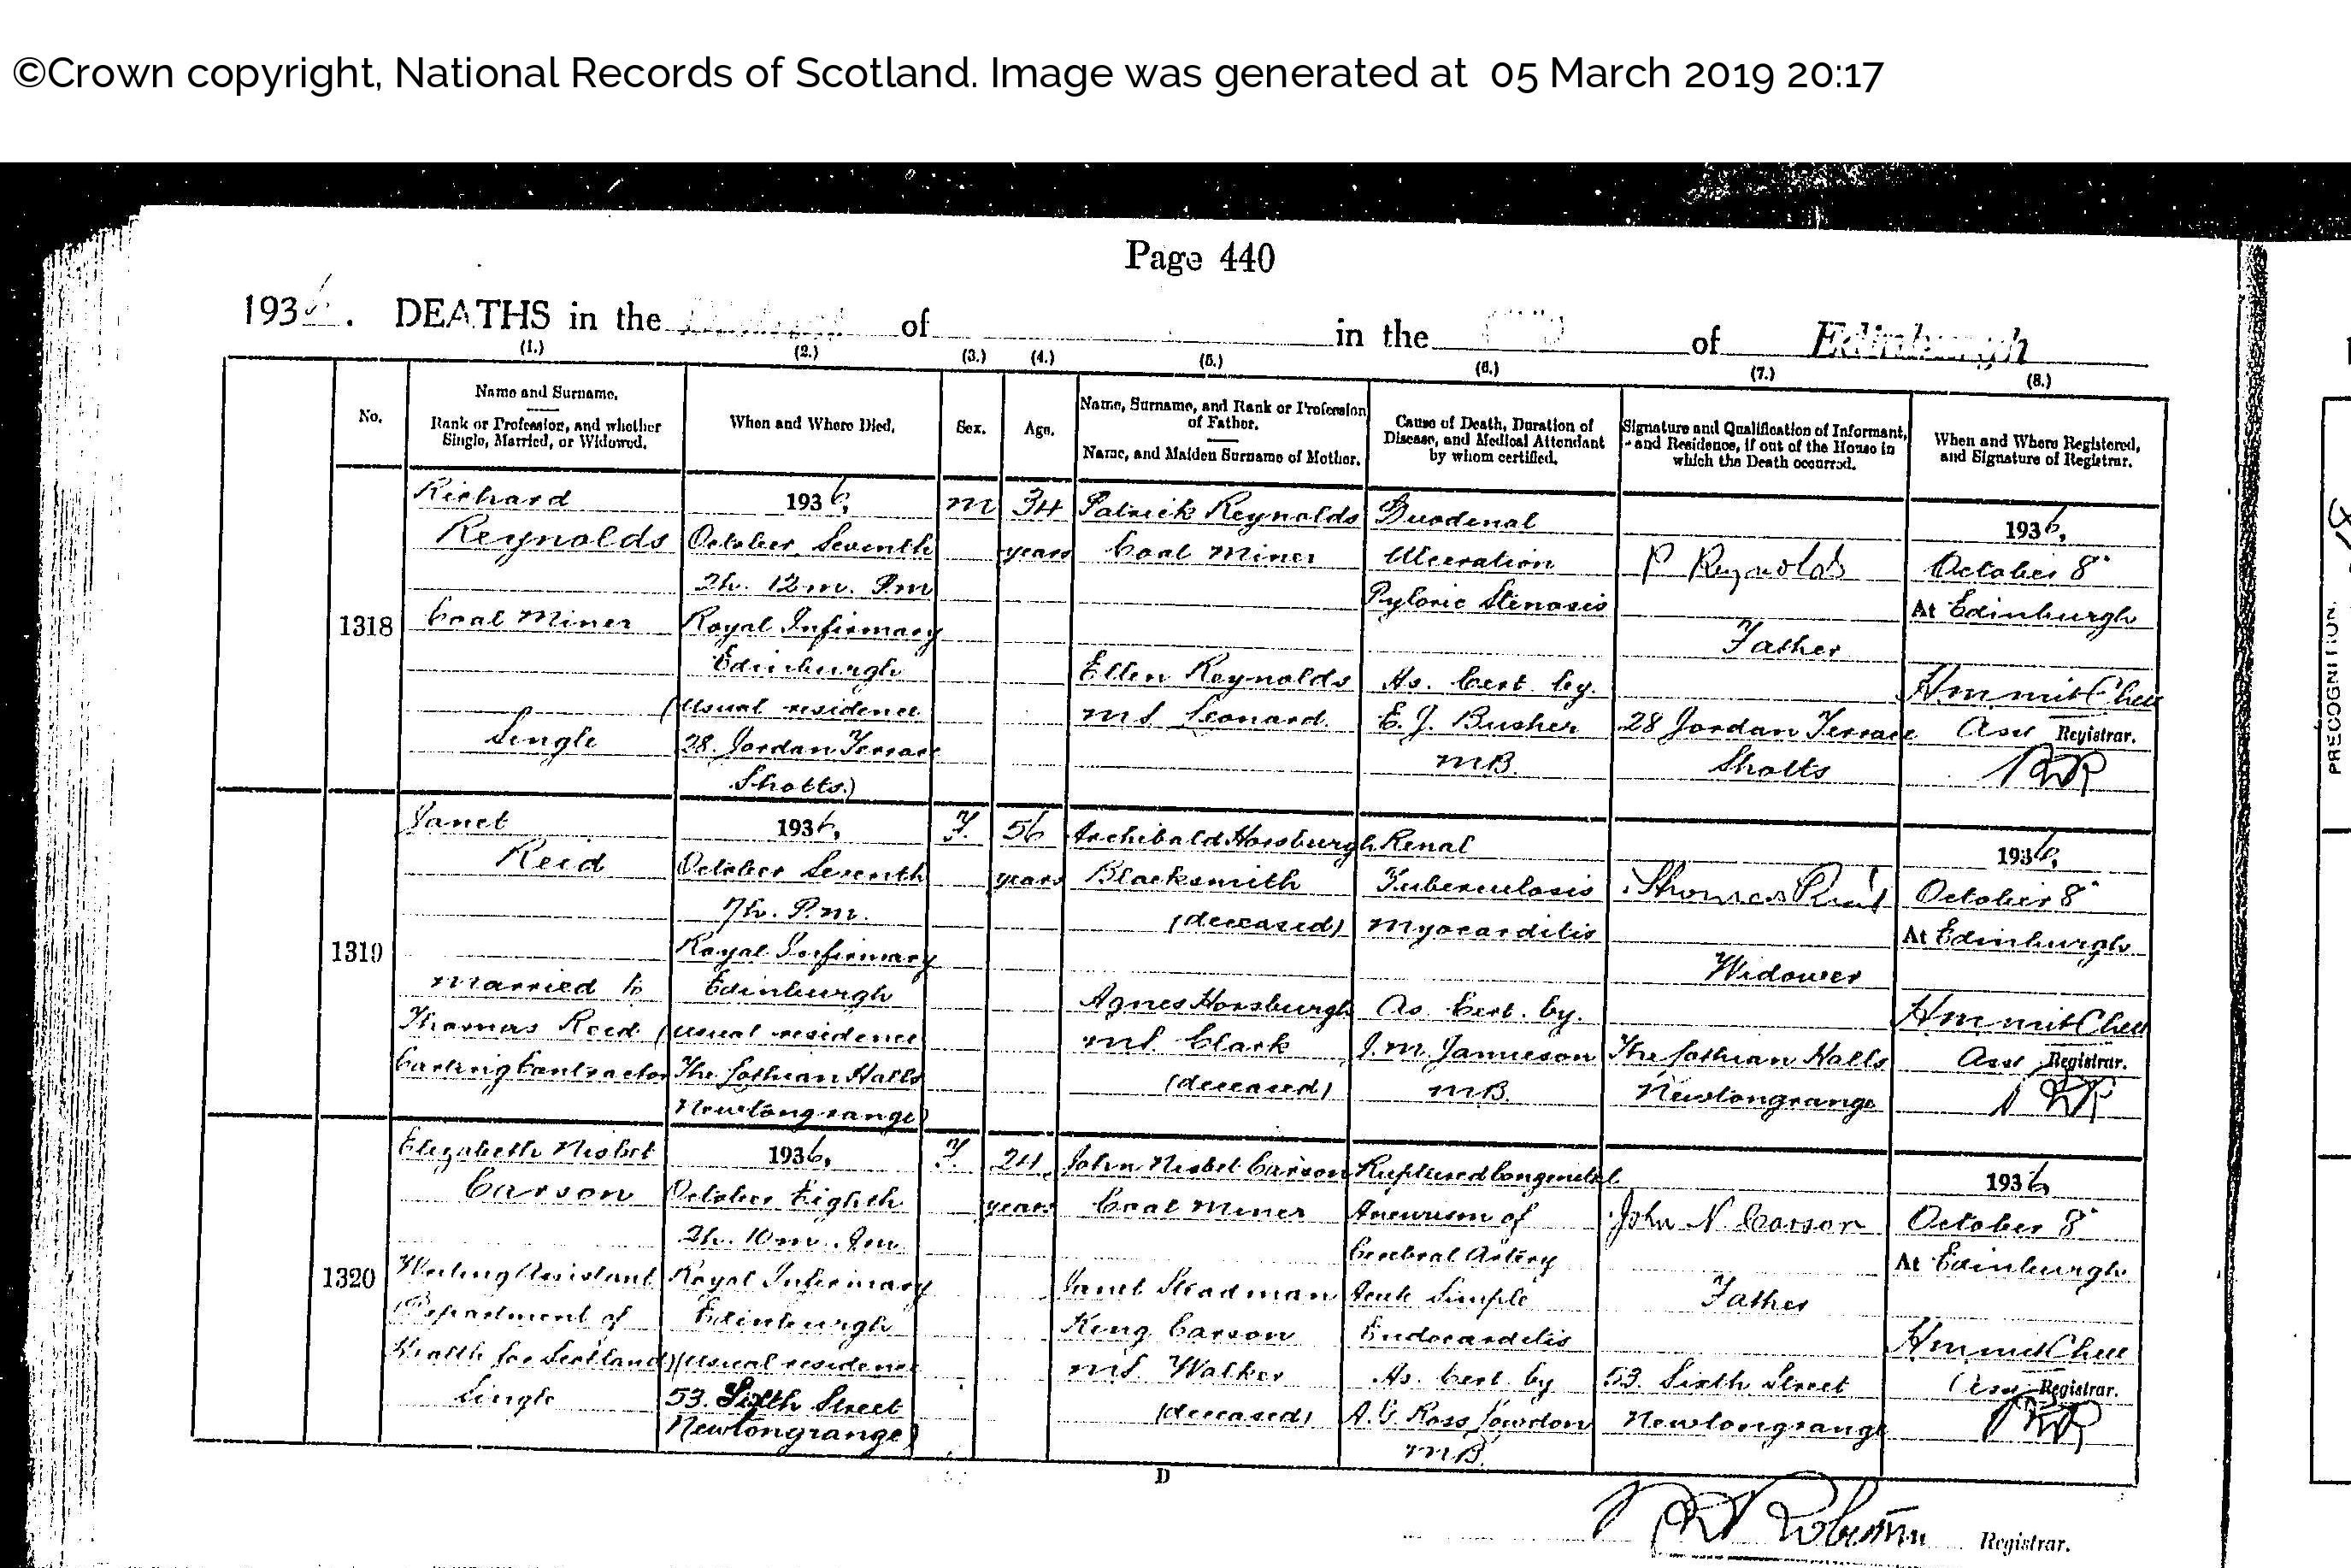 ©Crown copyright, National Records of Scotland. Image was generated at 05 March 2019 20:17
Page 440
1936. DEATHS in the of in the of Edinburgh
(1.) (2.) (3.) (4.) (5.) (6.) (7.) (8.)
No.
Name and Surname.
Rank or Profession, and whether
Single, Married, or Widowed.
When and Where Died.
Sex.
Age.
Name, Surname, and Rank or Profession
of Father.
Name, and Maiden Surname of Mother.
Cause of Death, Duration of
Disease, and Medical Attendant
by whom certified.
Signature and Qualification of Informant,
and Residence, if out of the House in
which the Death occurred.
When and Where Registered,
and Signature of Registrar.
1318
Richard
Reynolds
Coal Miner
Single
1936,
October Seventh
2h. 12m. P.m
Royal Infirmary
Edinburgh
(usual residence
28. Jordan Terrace
Shotts.)
M
34
years
Patrick Reynolds
Coal Miner
Ellen Reynolds
M.S. Leonard.
Duodenal
Ulceration
Pyloric Stenosis
As. Cert. by.
E. J. Busher
M.B.
P Reynolds
Father
28 Jordan Terrace
Shotts
1936,
October 8"
At Edinburgh
H m mitchell
Asst Registrar.
1319
Janet
Reid
Married to
Thomas Reid
Carting Contractor
1936,
October Seventh
7h. P.m.
Royal Infirmary
Edinburgh
(usual residence
The Lothian Halls
Newtongrange)
F.
56
years
Archibald Horsburgh
Blacksmith
(deceased)
Agnes Horsburgh
M.S. Clark
(deceased)
Renal
Tuberculosis
Myocarditis
As. Cert. by.
J. M. Jamieson
M.B.
Thomas Reid
Widower
The Lothian Halls
Newtongrange
1936,
October 8"
At Edinburgh
H m mitchell
Asst Registrar.
1320
Elizabeth Nisbet
Carson
Writing Assistant
(Department of
Health for Scotland)
Single
1936,
October Eighth
2h. 10m. Am
Royal Infirmary
Edinburgh
(usual residence
53. Sixth Street
Newtongrange)
F.
24
years
John Nisbet Carson
Coal Miner
Janet Steadman
King Carson
M.S. Walker
(deceased)
Ruptured Congenital
Aneurism of
Cerebral Artery
Acute Simple
Endocarditis
As. Cert. by
A. G. Ross Lowdon
M.B.
John N Carson
Father
53. Sixth Street
Newtongrange
1936
October 8"
At Edinburgh
H m mitchell
Asst Registrar.
D
Registrar.
PRECOGNITION.